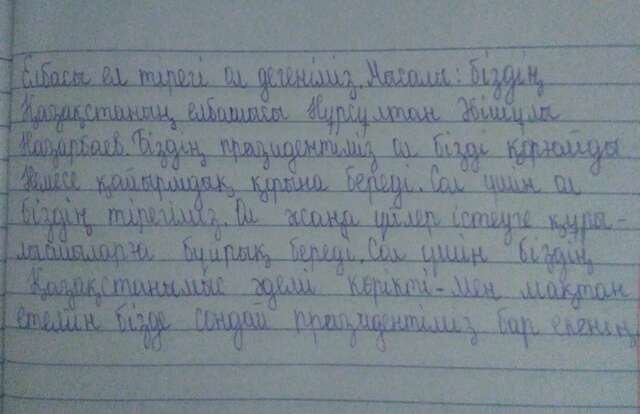 Елбасы ел тірегі ол дегеніміз. Мысалы: біздің
Қазақстаның елбашысы Нұрсұлтан Әбішұлы
Назарбаев. Біздің президентіміз ол бізді қорғайды
Немесе қайырмдық қорына береді. Сол үшін ол
біздің тірегіміз. Ол жаңа үйлер істеуге құры-
лысшыларға бұйрық береді. Сол үшін біздің
Қазақстанымыс әдемі көрікті-мен мақтан
етемін бізде сондай президентіміз бар екенің